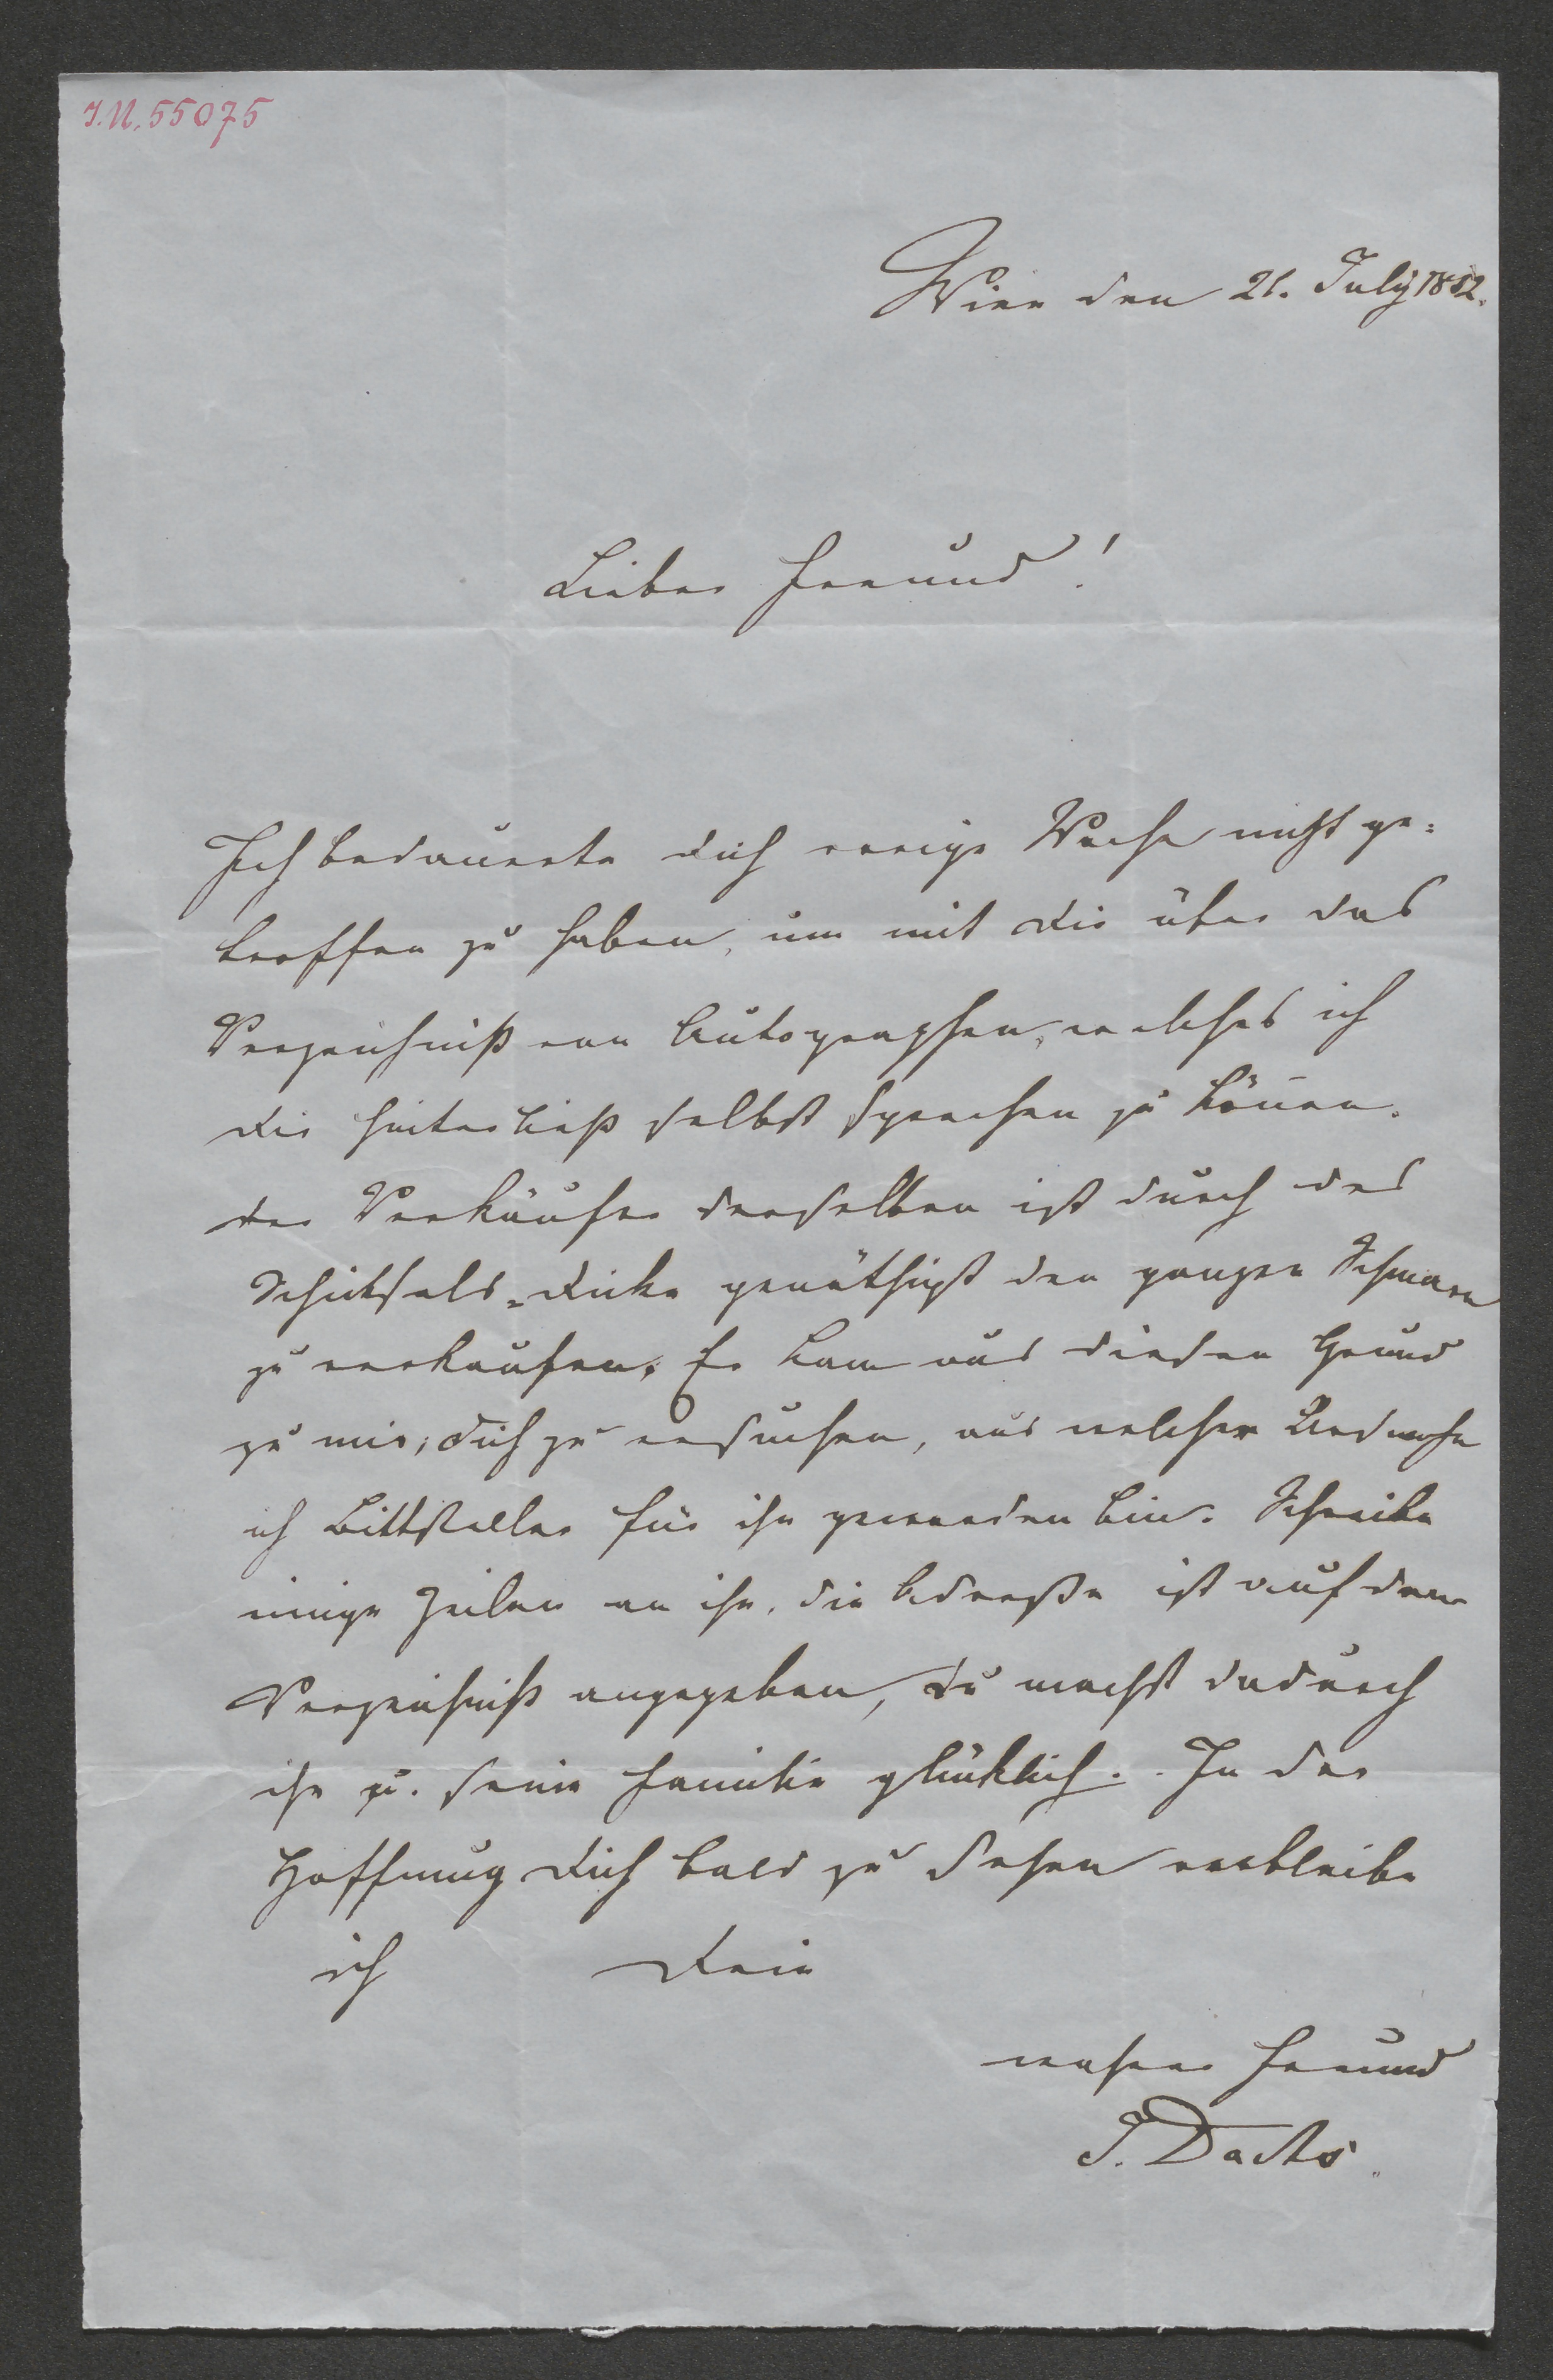 I.N. 55075
Wien den 21. July 1852.
Lieber Freund!
Ich bedauerte dich vorige Woche nicht ge-
troffen zu haben, um mit dir über das
Verzeichniß von Autographen, welches ich
dir hinterließ selbst sprechen zu könen.
der Verkäufer derselben ist durch des
Schicksals-Tücke genöthigt den ganzen
zu verkaufen. Er kam aus diesen Grund
zu mir, dich zu ersuchen, aus welcher Ursache
ich Bittsteller für ihn geworden bin. Schreibe
einige Zeilen an ihn, die Adreße ist auf dem
Verzeichniß angegeben, du machst dadurch
ihn u. seine Familie glücklich. In der
Hoffnung dich bald zu sehen verbleibe
ich Dein
wahrer Freund
J. Dachs.